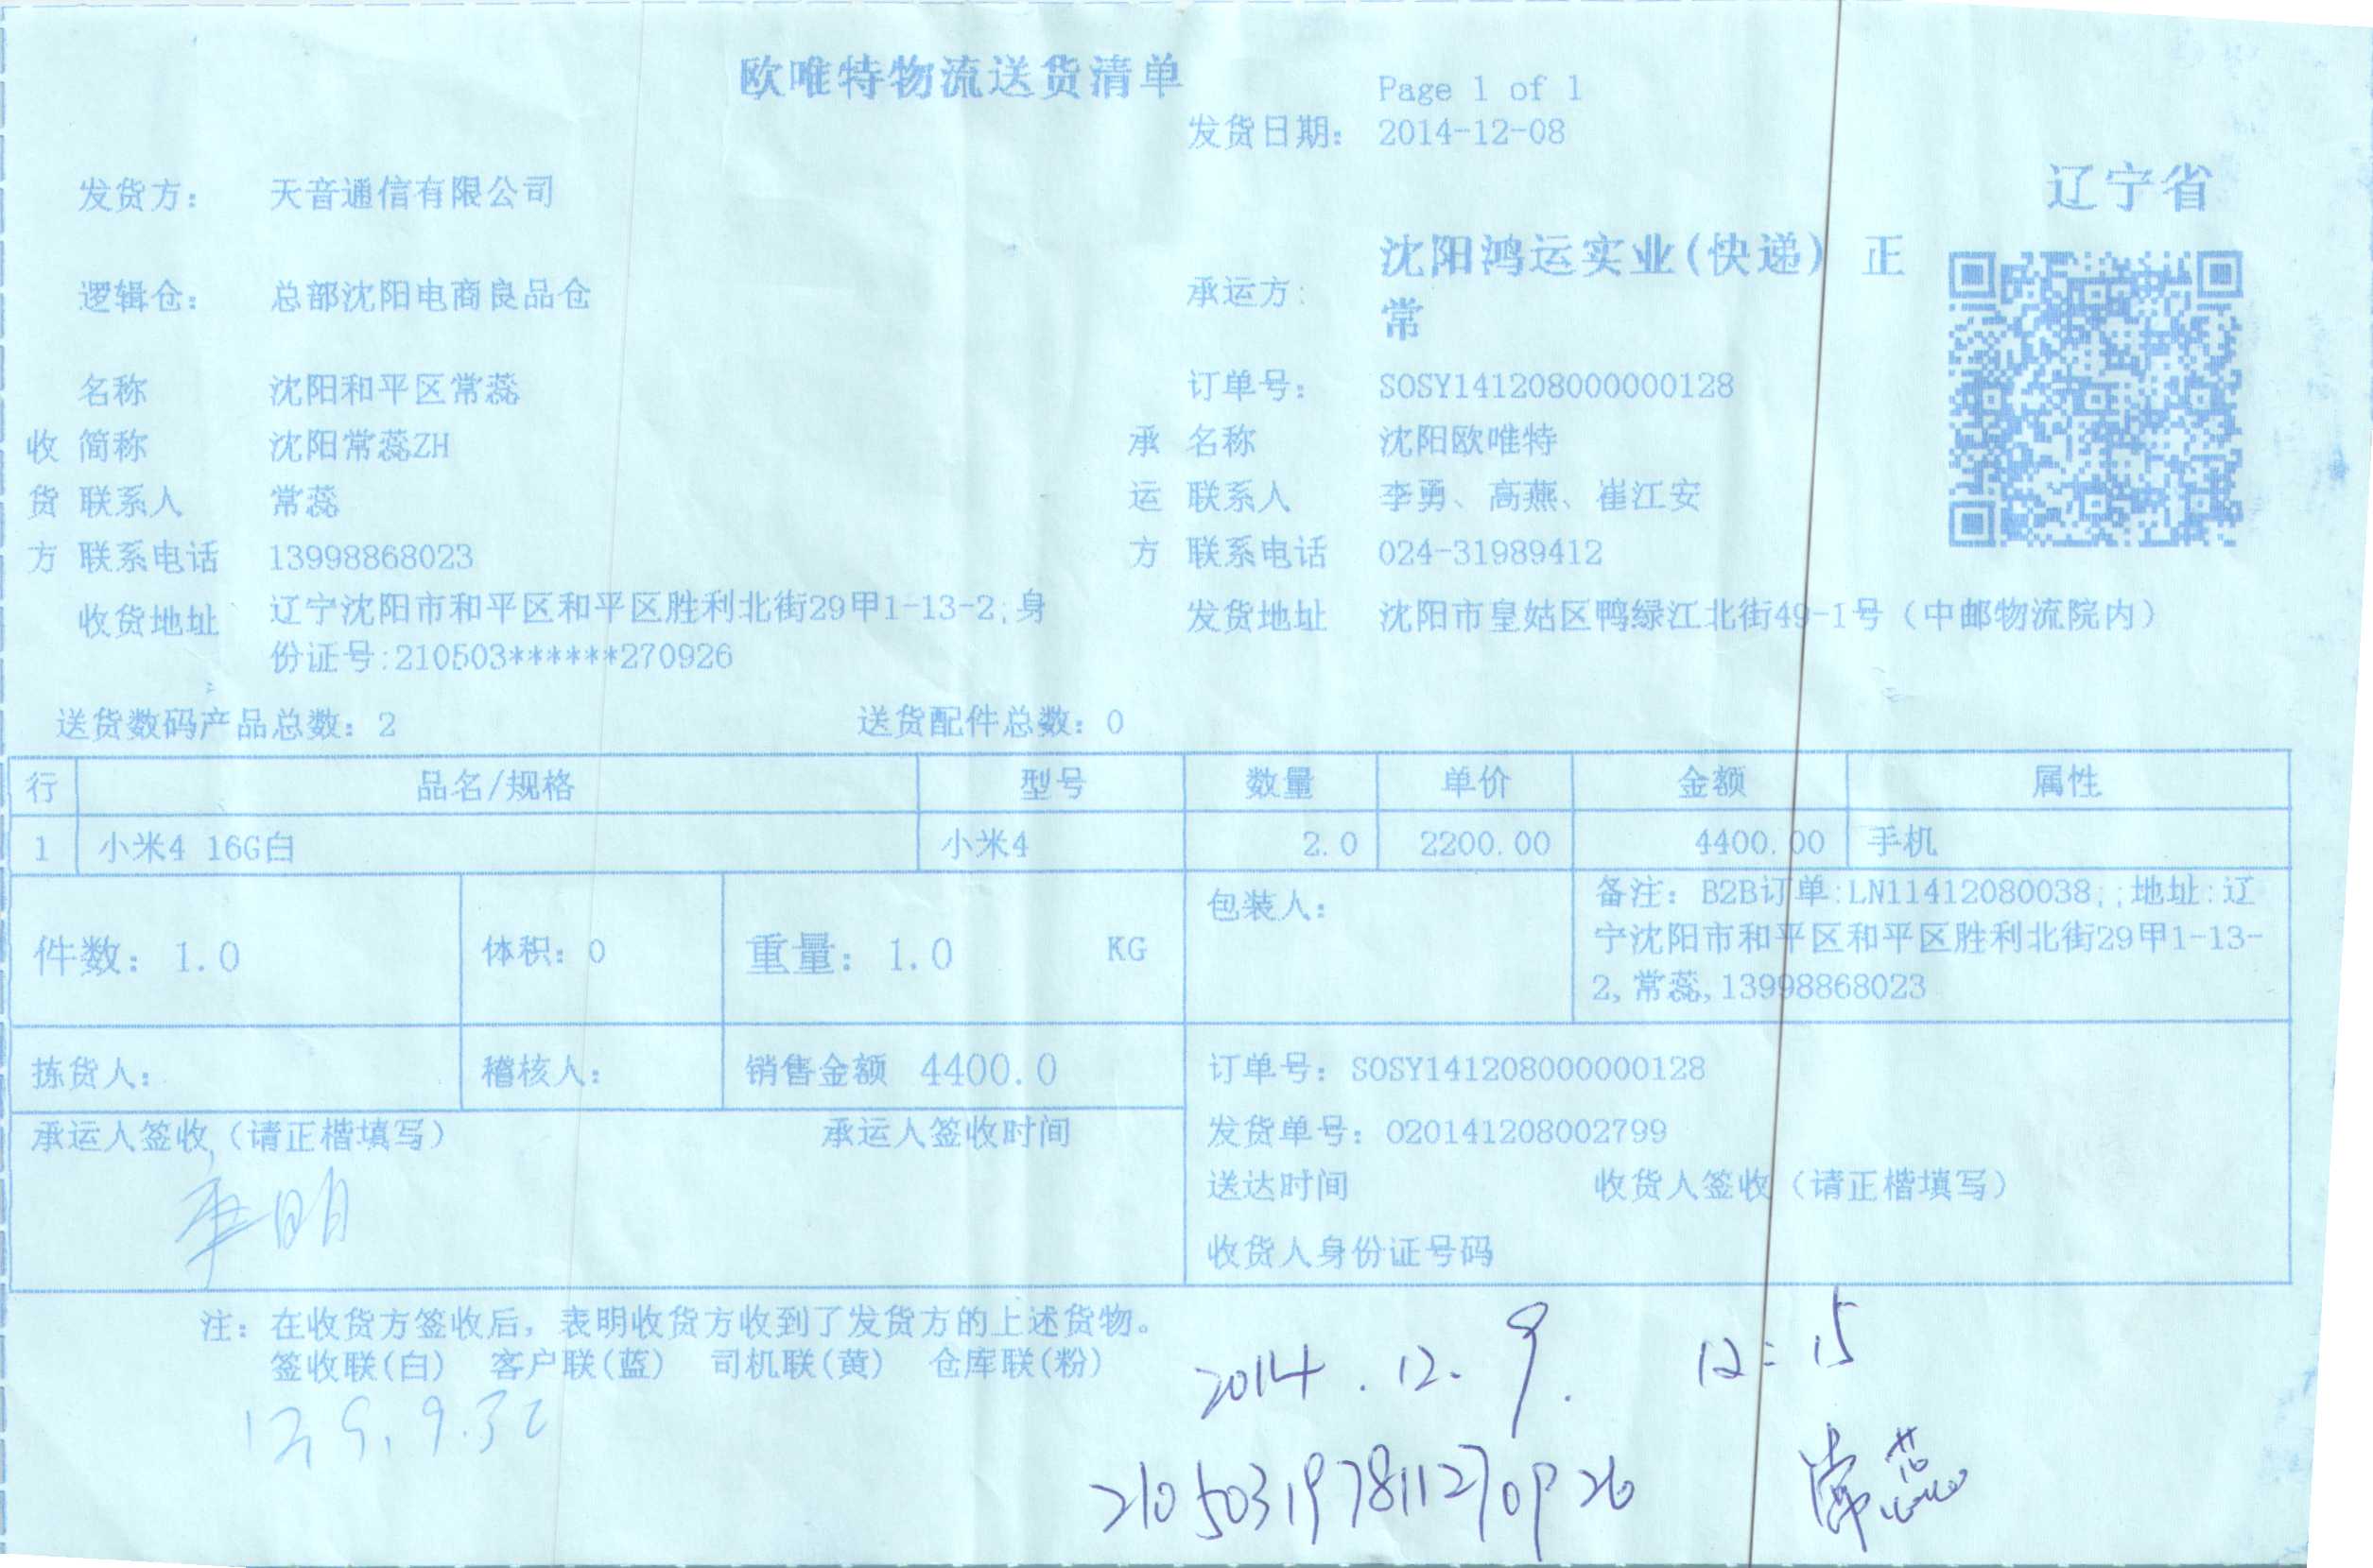 欧唯特物流送货清单
Page 1 of 1
发货日期： 2014-12-08
辽宁省
发货方： 天音通信有限公司
逻辑仓： 总部沈阳电商良品仓
承运方： 沈阳鸿运实业(快递) 正
常
名称 沈阳和平区常蕊
订单号： SOSY141208000000128
收 简称 沈阳常蕊ZH
承 名称 沈阳欧唯特
货 联系人 常蕊
运 联系人 李勇、高燕、崔江安
方 联系电话 13998868023
方 联系电话 024-31989412
收货地址 辽宁沈阳市和平区和平区胜利北街29甲1-13-2;身
份证号:210503******270926
发货地址 沈阳市皇姑区鸭绿江北街49-1号（中邮物流院内）
送货数码产品总数：2 送货配件总数：0
行 品名/规格 型号 数量 单价 金额 属性
1 小米4 16G白 小米4 2.0 2200.00 4400.00 手机
件数：1.0 体积：0 重量：1.0 KG 包装人：
备注：B2B订单:LN11412080038;;地址:辽
宁沈阳市和平区和平区胜利北街29甲1-13-
2,常蕊,13998868023
拣货人： 稽核人： 销售金额 4400.0
订单号：SOSY141208000000128
承运人签收（请正楷填写） 承运人签收时间
发货单号：020141208002799
送达时间 收货人签收（请正楷填写）
收货人身份证号码
注：在收货方签收后，表明收货方收到了发货方的上述货物。
签收联(白) 客户联(蓝) 司机联(黄) 仓库联(粉)
2014.12.9. 12:15
210503197811270926 常蕊